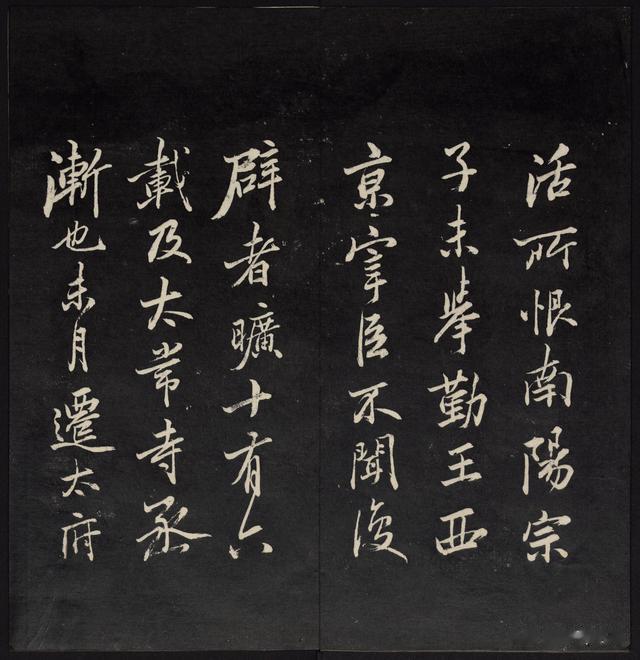 活所恨南陽宗
子未舉勤王西
京宰臣不聞復
辟者曠十有六
載及太常寺丞
漸也未月遷太府